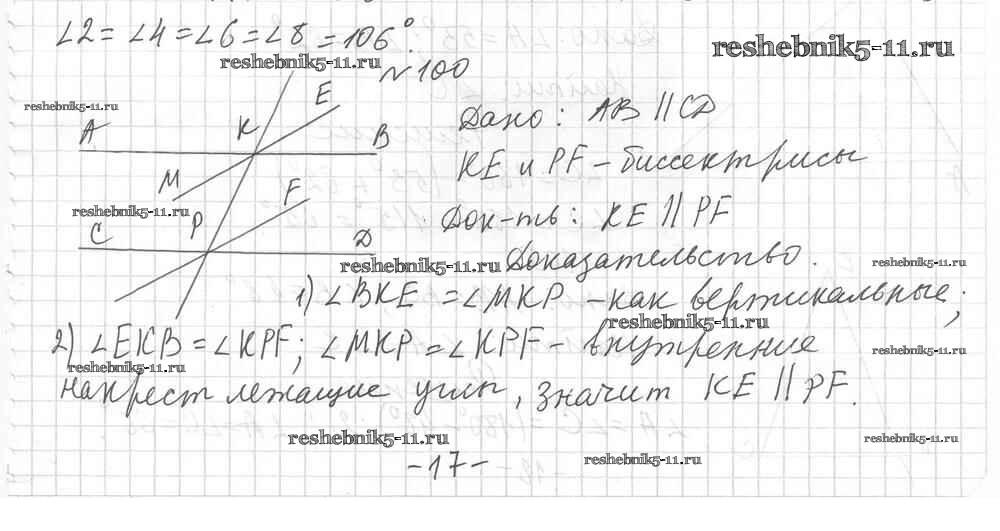 ∠2 = ∠4 = ∠6 = ∠8 = 106°.
reshebnik5-11.ru
reshebnik5-11.ru
№ 100
reshebnik5-11.ru
E
A
K
B
Дано: AB || CD
KE и PF – биссектрисы
M
F
reshebnik5-11.ru
Док-ть: KE || PF
C
P
D
reshebnik5-11.ru
Доказательство.
reshebnik5-11.ru
1) ∠BKE = ∠MKP – как вертикальные;
reshebnik5-11.ru
2) ∠EKB = ∠KPF; ∠MKP = ∠KPF – внутренние
reshebnik5-11.ru
reshebnik5-11.ru
накрест лежащие углы, значит KE || PF.
reshebnik5-11.ru
reshebnik5-11.ru
-17-
reshebnik5-11.ru